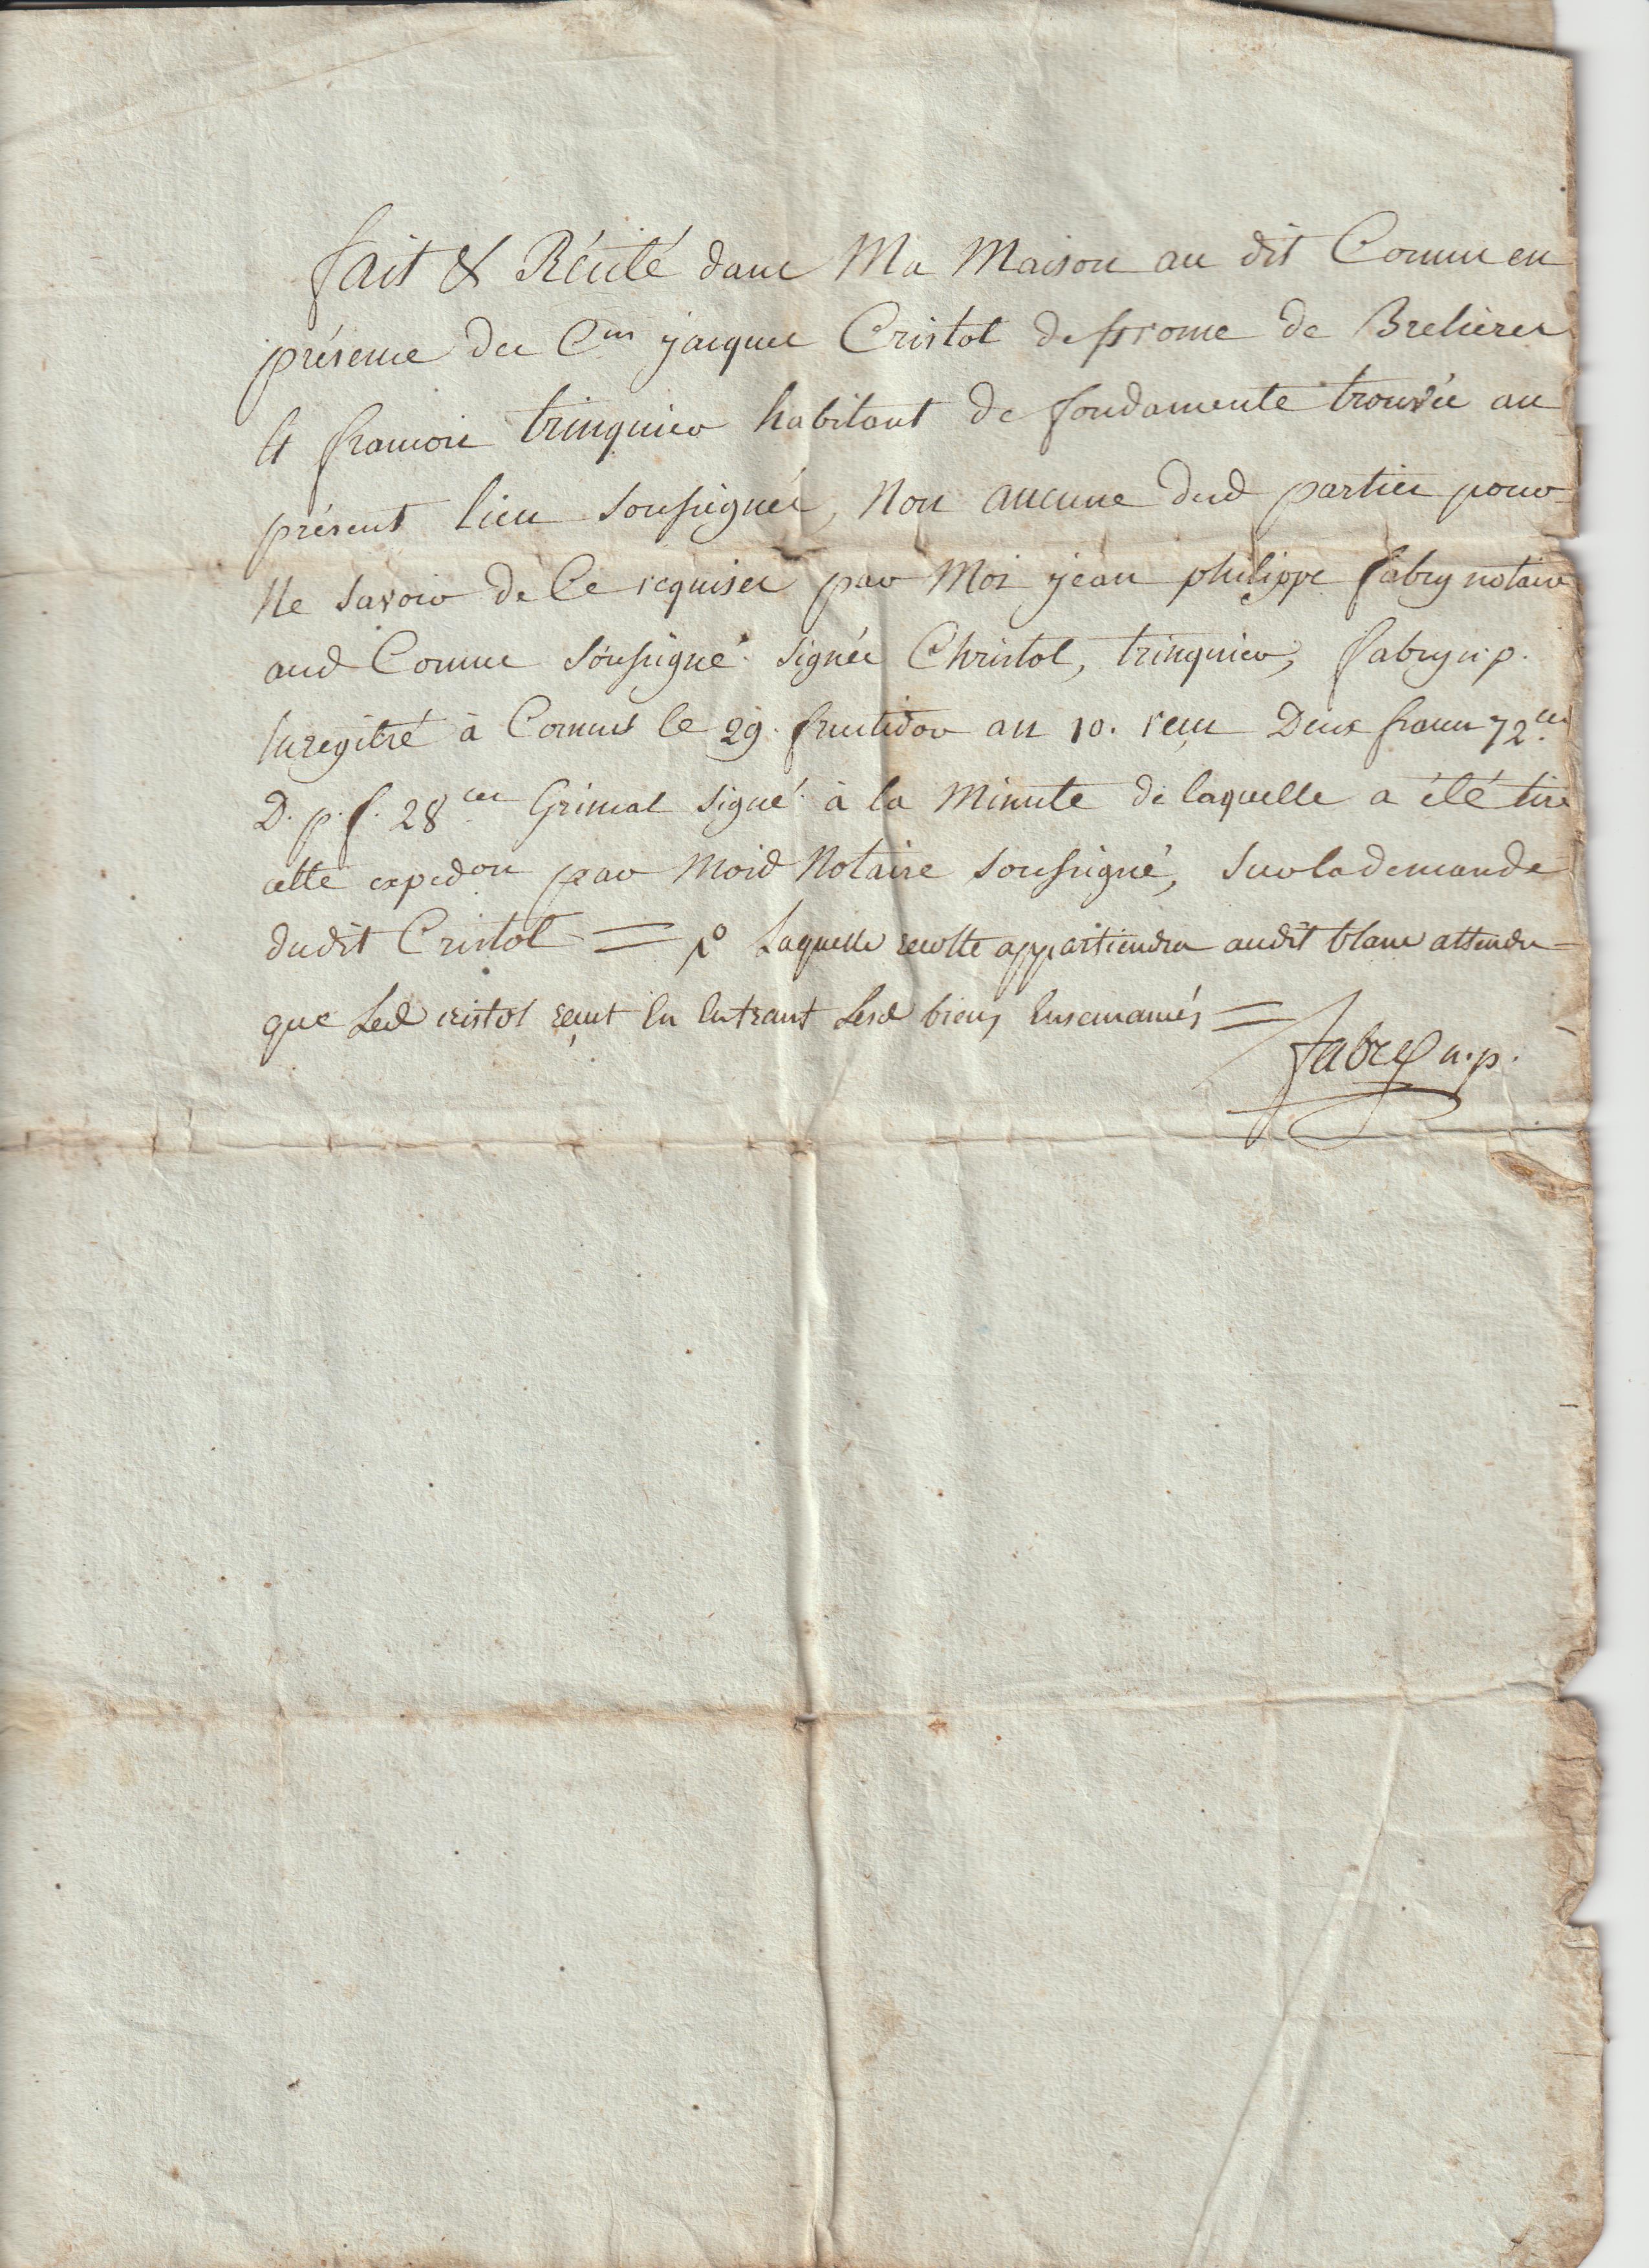 fait & Récité dans Ma Maison au dit Cornus en
présence des C.ens jacques Cristol de de Brelieres
Et francois trinquier habitant de fondamente trouvés au
présent lieu soussignés, Non aucune dud parties pour
Ne savoir de Ce requises par Moi jean philippe fabry notaire
aud Cornus soussigné. signés Christol, trinquier, fabry n.p.
Enregitré à Cornus le 29. fructidor an 10. reçu Deux francs 72 ces
D. p. f. 28 ces Grimal signé à la Minute de laquelle a été tiré
cette expedon par Moid Notaire soussigné, sur la demande
dudit Cristol = po Laquelle recolte appartiendra audit blanc attendu
que Led cristol reçut En Entrant Lesd biens Ensemancés =
fabry n.p.